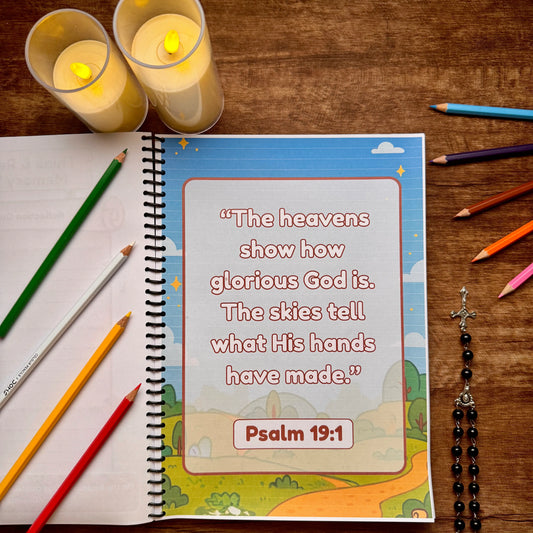 “The heavens
show how
glorious God is.
The skies tell
what His hands
have made.”
Psalm 19:1